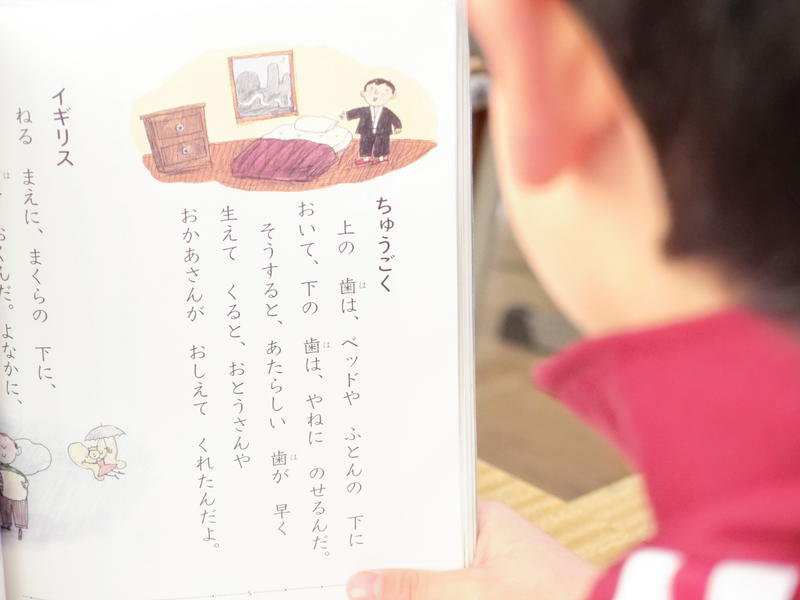 ちゅうごく
上の 歯は、ベッドや ふとんの 下に
おいて、下の 歯は、やねに のせるんだ。
そうすると、あたらしい 歯が 早く
生えて くると、おとうさんや
おかあさんが おしえて くれたんだよ。
イギリス
ねる まえに、まくらの 下に、
おくんだ。よなかに、
5